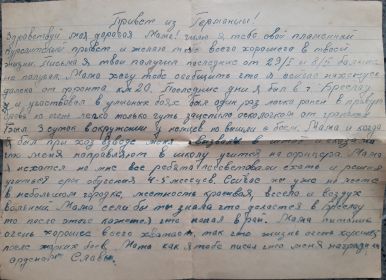 Привет из Германии!
Здравствуй моя дорогая Мама! Шлю я тебе свой пламенный
курсантский привет и желаю тебе всего хорошего в твоей
жизни. Письма я твои получил последние от 29/I и 8/II больше
не получал. Мама хочу тебе сообщить что я сейчас нахожусь
далеко от фронта км 20. Последние дни я был в г. Бреслау
я участвовал в уличных боях был один раз легко ранен в правую
бровь но очень легко только чуть зацепило осколком от гранаты
Был 3 суток в окружении у немцев но вышли с боем. Мама и когда
я был при хоз взводе меня вызвали в штаб и сказали
что меня направляют в школу учится на офицера. Мама
я но все ребята посоветовали ехать и решил
учиться срок обучения 4-5 месяцев. Сейчас же уже на месте
в небольшом городке, местность красивая, весело и воздух
вольный Мама если бы ты знала что делается в Бреслау
то после этого кажется что попал в рай. Мама питание
очень хорошее всего хватает, так что жизнь очень хорошая
после жарких боев. Мама как я тебе писал что меня наградили
орденом Славы.